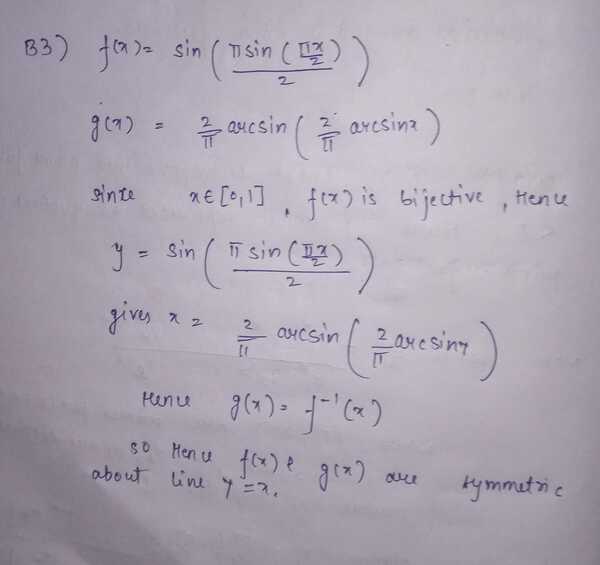 B3) f(x) = sin ( π sin ( πx/2 ) / 2 )
g(x) = 2/π arcsin ( 2/π arcsinx )
since x ∈ [0,1] , f(x) is bijective , Hence
y = sin ( π sin ( πx/2 ) / 2 )
gives x = 2/π arcsin ( 2/π arcsiny )
Hence g(x) = f⁻¹(x)
so Hence f(x) & g(x) are symmetric
about line y = x.